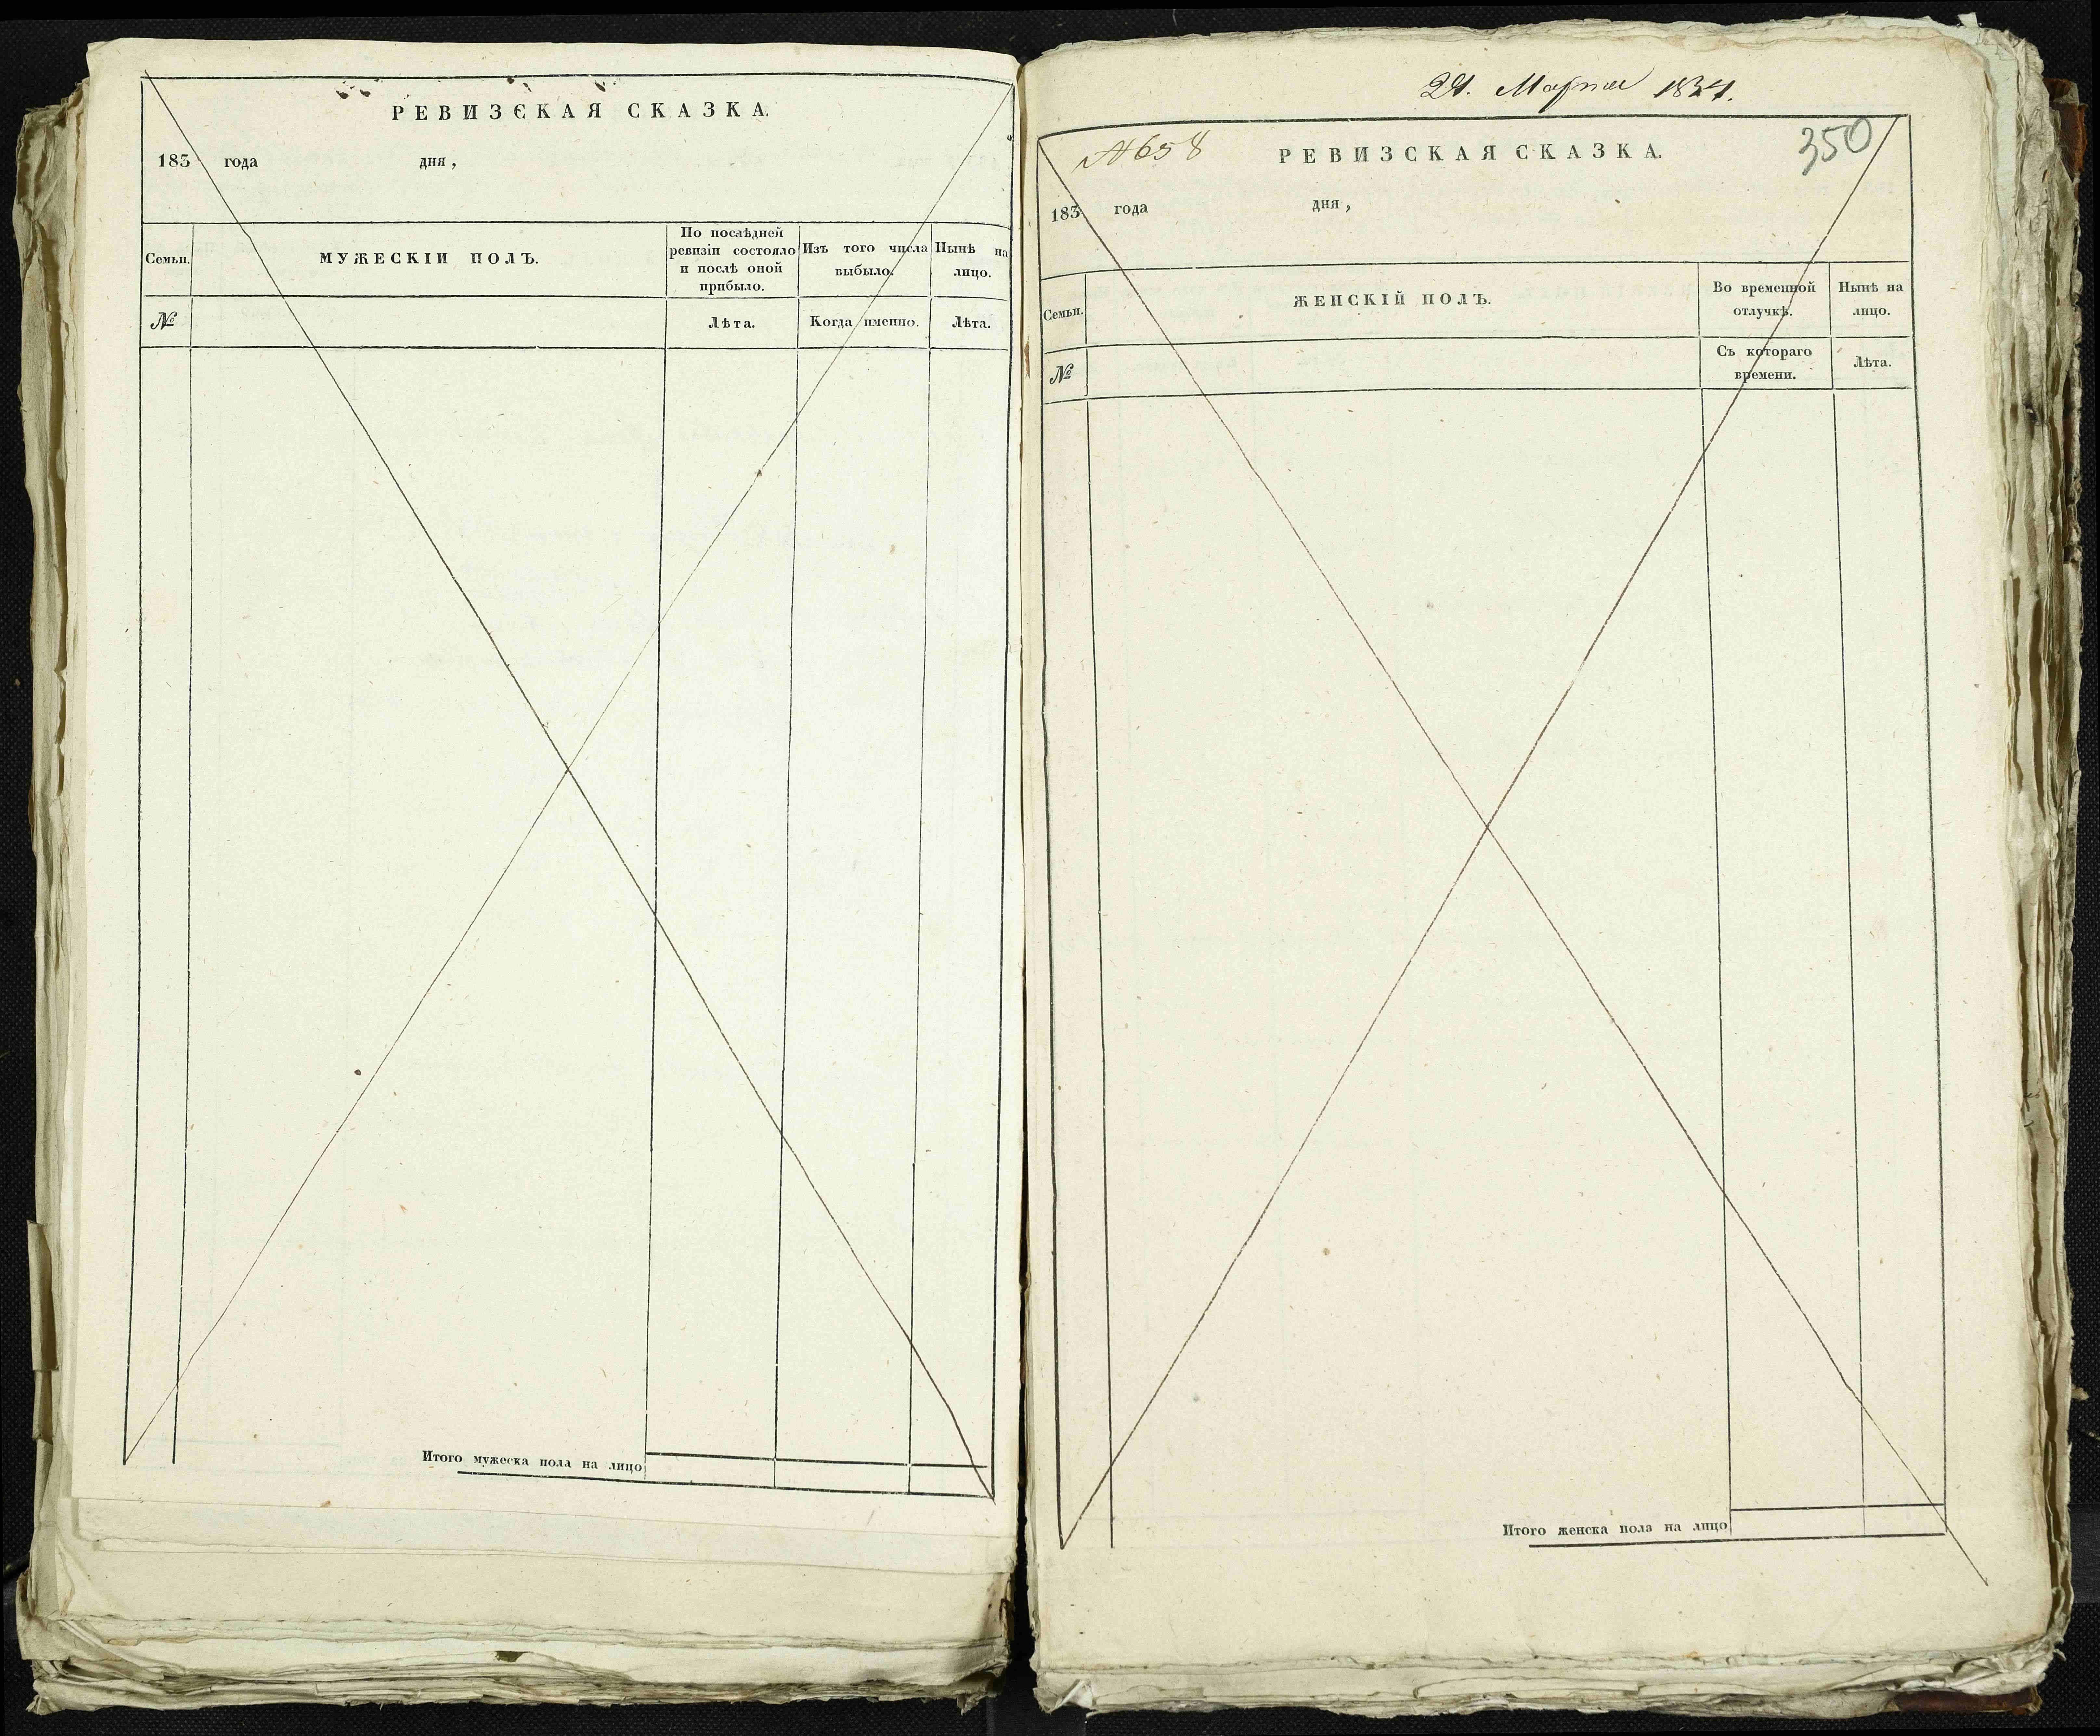 РЕВИЗСКАЯ СКАЗКА.
183 года дня,
Семьи.
МУЖЕСКІЙ ПОЛЪ.
По послѣдней
ревизіи состояло
и послѣ оной
прибыло.
Изъ того числа
выбыло.
Нынѣ на
лицо.
№
Лѣта.
Когда именно.
Лѣта.
Итого мужеска пола на лицо
Марта 1834.
№ 658
РЕВИЗСКАЯ СКАЗКА.
350
183 года дня,
Семьи.
ЖЕНСКІЙ ПОЛЪ.
Во временной
отлучкѣ.
Нынѣ на
лицо.
№
Съ котораго
времени.
Лѣта.
Итого женска пола на лицо